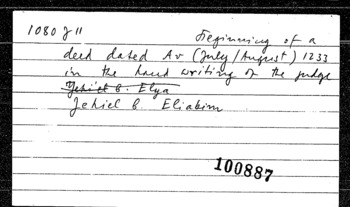 1080 J 11
Beginning of a
deed dated Av (July/August) 1233
in the hand writing of the judge
Jehiel b. Elya
Jehiel b. Eliakim
100887